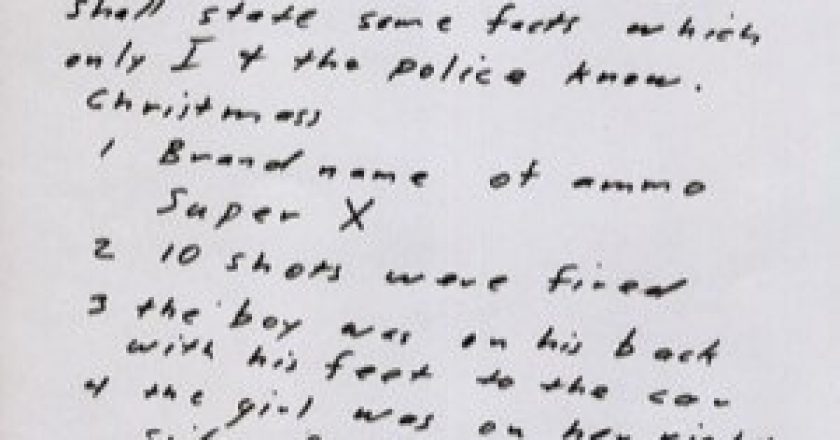 Shall state some facts which
only I + the police know.
Christmass
1 Brand name of ammo
Super X
2 10 shots were fired
3 the boy was on his back
with his feet to the car
4 the girl was on her right